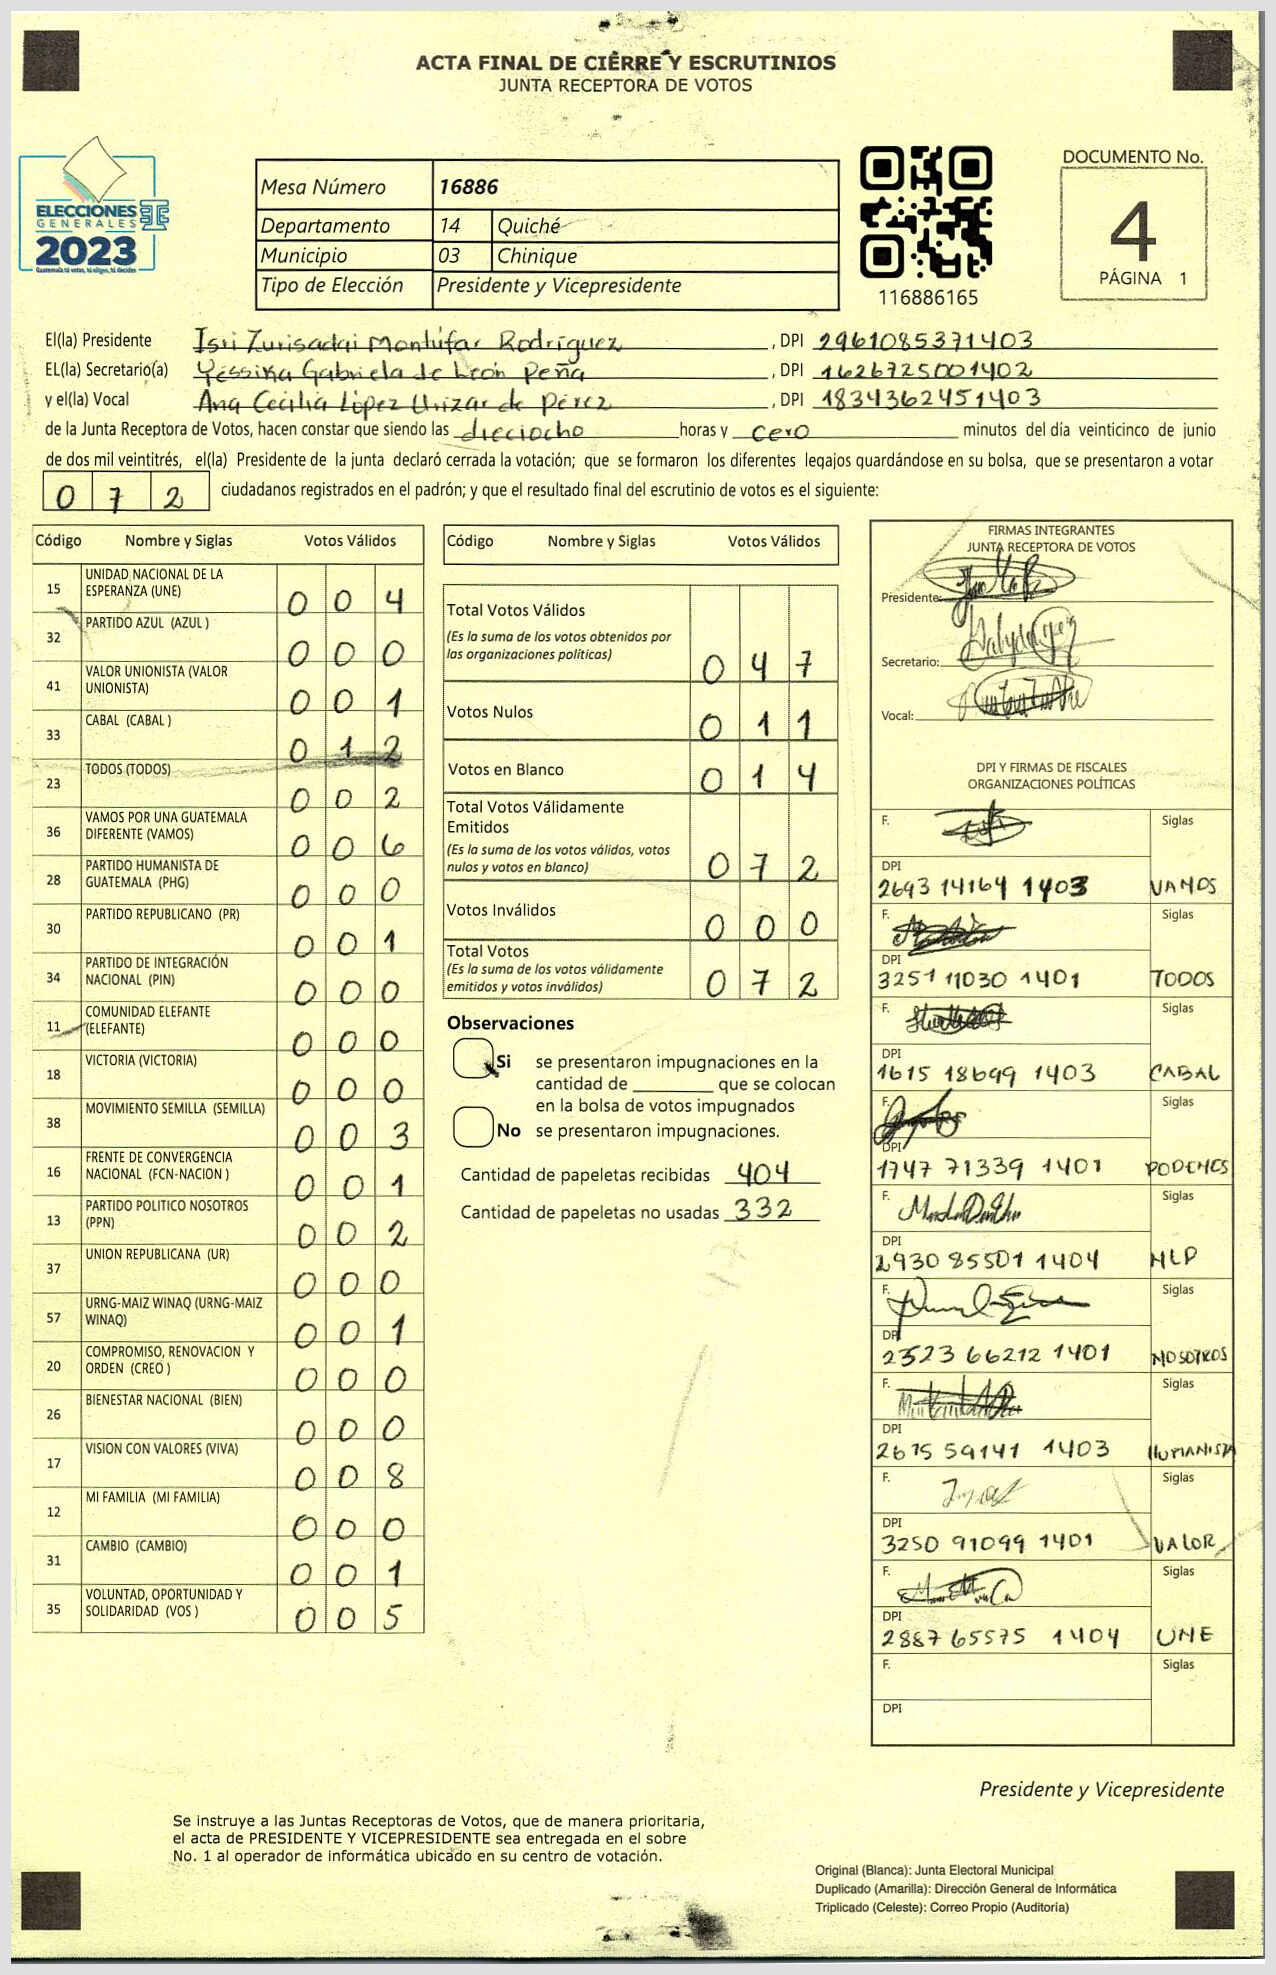 ACTA FINAL DE CIERRE Y ESCRUTINIOS
JUNTA RECEPTORA DE VOTOS
ELECCIONES
GENERALES
2023
Guatemala tú votas, tú eliges, tú decides
Mesa Número 16886
Departamento 14 Quiché
Municipio 03 Chinique
Tipo de Elección Presidente y Vicepresidente
116886165
DOCUMENTO No.
4
PÁGINA 1
El(la) Presidente Isri Zurisadai Montúfar Rodríguez, DPI 2961085371403
EL(la) Secretario(a) Yessika Gabriela de León Peña, DPI 1626725001402
y el(la) Vocal Ana Cecilia López Urizar de Pérez, DPI 1834362451403
de la Junta Receptora de Votos, hacen constar que siendo las dieciocho horas y cero minutos del día veinticinco de junio
de dos mil veintitrés, el(la) Presidente de la junta declaró cerrada la votación; que se formaron los diferentes legajos guardándose en su bolsa, que se presentaron a votar
0 7 2 ciudadanos registrados en el padrón; y que el resultado final del escrutinio de votos es el siguiente:
Código Nombre y Siglas Votos Válidos
15 UNIDAD NACIONAL DE LA ESPERANZA (UNE) 0 0 4
32 PARTIDO AZUL (AZUL ) 0 0 0
41 VALOR UNIONISTA (VALOR UNIONISTA) 0 0 1
33 CABAL (CABAL ) 0 1 2
23 TODOS (TODOS) 0 0 2
36 VAMOS POR UNA GUATEMALA DIFERENTE (VAMOS) 0 0 6
28 PARTIDO HUMANISTA DE GUATEMALA (PHG) 0 0 0
30 PARTIDO REPUBLICANO (PR) 0 0 1
34 PARTIDO DE INTEGRACIÓN NACIONAL (PIN) 0 0 0
11 COMUNIDAD ELEFANTE (ELEFANTE) 0 0 0
18 VICTORIA (VICTORIA) 0 0 0
38 MOVIMIENTO SEMILLA (SEMILLA) 0 0 3
16 FRENTE DE CONVERGENCIA NACIONAL (FCN-NACION ) 0 0 1
13 PARTIDO POLITICO NOSOTROS (PPN) 0 0 2
37 UNION REPUBLICANA (UR) 0 0 0
57 URNG-MAIZ WINAQ (URNG-MAIZ WINAQ) 0 0 1
20 COMPROMISO, RENOVACION Y ORDEN (CREO ) 0 0 0
26 BIENESTAR NACIONAL (BIEN) 0 0 0
17 VISION CON VALORES (VIVA) 0 0 8
12 MI FAMILIA (MI FAMILIA) 0 0 0
31 CAMBIO (CAMBIO) 0 0 1
35 VOLUNTAD, OPORTUNIDAD Y SOLIDARIDAD (VOS ) 0 0 5
Código Nombre y Siglas Votos Válidos
Total Votos Válidos
(Es la suma de los votos obtenidos por
las organizaciones políticas) 0 4 7
Votos Nulos 0 1 1
Votos en Blanco 0 1 4
Total Votos Válidamente
Emitidos
(Es la suma de los votos válidos, votos
nulos y votos en blanco) 0 7 2
Votos Inválidos 0 0 0
Total Votos
(Es la suma de los votos válidamente
emitidos y votos inválidos) 0 7 2
Observaciones
Si se presentaron impugnaciones en la
cantidad de ________ que se colocan
en la bolsa de votos impugnados
No se presentaron impugnaciones.
Cantidad de papeletas recibidas 404
Cantidad de papeletas no usadas 332
FIRMAS INTEGRANTES
JUNTA RECEPTORA DE VOTOS
Presidente:
Secretario:
Vocal:
DPI Y FIRMAS DE FISCALES
ORGANIZACIONES POLÍTICAS
F. Siglas
DPI
2693 14164 1403 VAMOS
F. Siglas
DPI
3251 11030 1401 TODOS
F. Siglas
DPI
1615 18699 1403 CABAL
F. Siglas
DPI
1747 71339 1401 PODEMOS
F. Siglas
DPI
2930 85501 1404 MLP
F. Siglas
DPI
2523 66212 1401 NOSOTROS
F. Siglas
DPI
2675 59141 1403 HUMANISTA
F. Siglas
DPI
3250 91099 1401 VALOR
F. Siglas
DPI
2887 65575 1404 UNE
F. Siglas
DPI
Presidente y Vicepresidente
Se instruye a las Juntas Receptoras de Votos, que de manera prioritaria,
el acta de PRESIDENTE Y VICEPRESIDENTE sea entregada en el sobre
No. 1 al operador de informática ubicado en su centro de votación.
Original (Blanca): Junta Electoral Municipal
Duplicado (Amarilla): Dirección General de Informática
Triplicado (Celeste): Correo Propio (Auditoría)